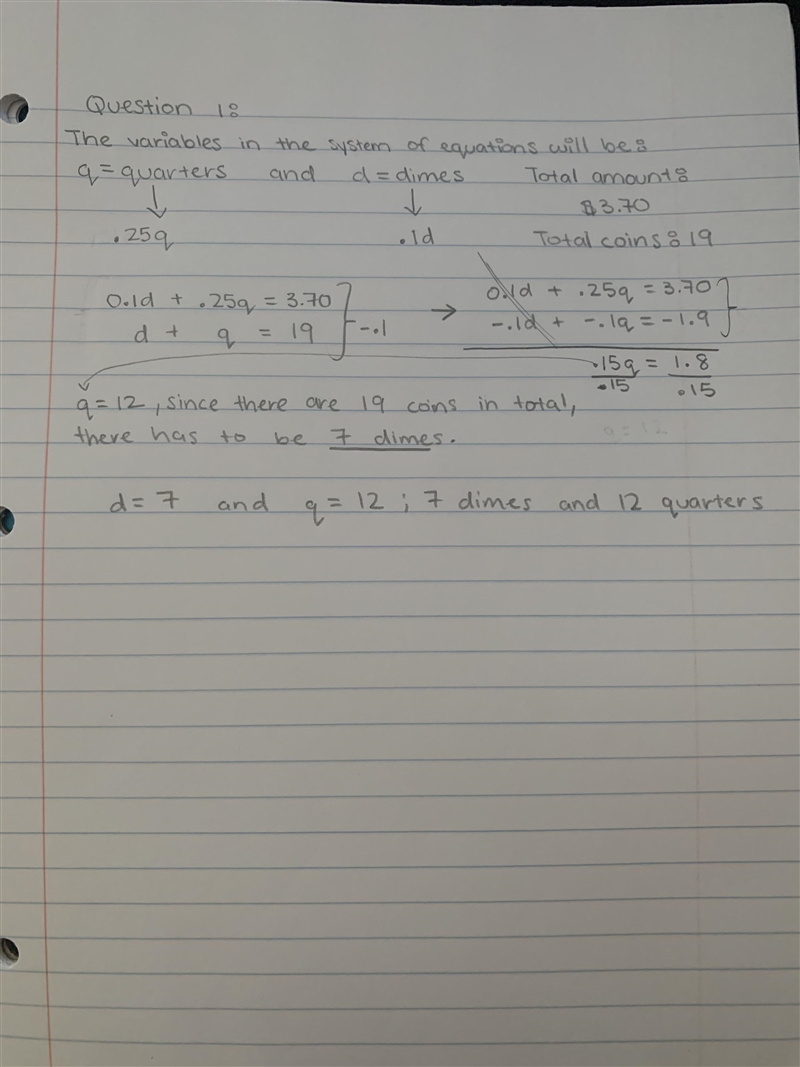 Question 1:
The variables in the system of equations will be:
q = quarters and d = dimes Total amount:
$3.70
.25q .1d Total coins: 19
0.1d + .25q = 3.70
d + q = 19 -.1
→ 0.1d + .25q = 3.70
-.1d + -.1q = -1.9
.15q = 1.8
.15 .15
q = 12, since there are 19 coins in total,
there has to be 7 dimes.
q = 12
d = 7 and q = 12 ; 7 dimes and 12 quarters